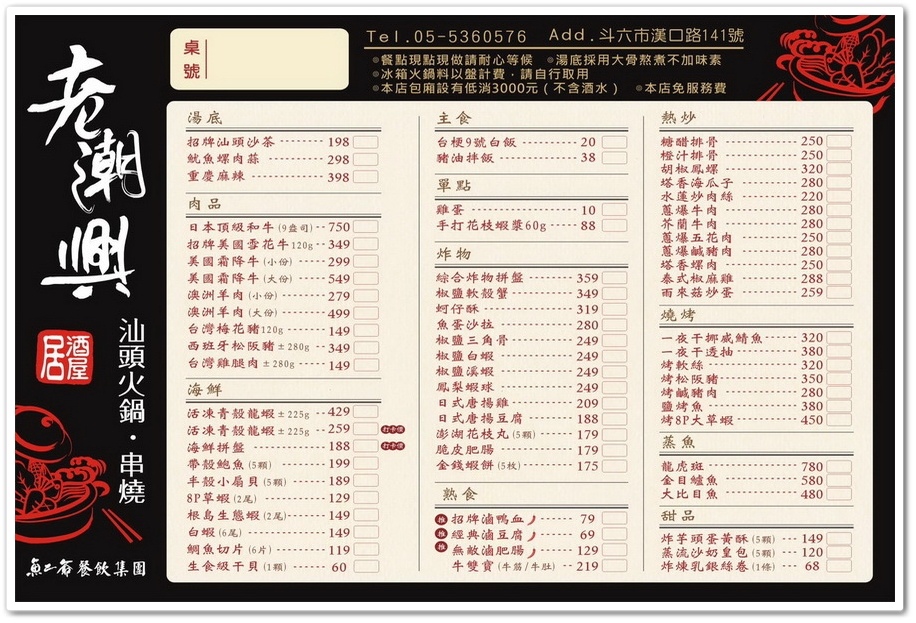 老潮興
居酒屋
汕頭火鍋・串燒
魚二爺餐飲集團
桌號
Tel.05-5360576 Add.斗六市漢口路141號
◎餐點現點現做請耐心等候 ◎湯底採用大骨熬煮不加味素
◎冰箱火鍋料以盤計費，請自行取用
◎本店包廂設有低消3000元（不含酒水） ◎本店免服務費
湯底
招牌汕頭沙茶 198
魷魚螺肉蒜 298
重慶麻辣 398
肉品
日本頂級和牛(9盎司) 750
招牌美國雪花牛120g 349
美國霜降牛(小份) 299
美國霜降牛(大份) 549
澳洲羊肉(小份) 279
澳洲羊肉(大份) 499
台灣梅花豬120g 149
西班牙松阪豬±280g 349
台灣雞腿肉±280g 149
海鮮
活凍青殼龍蝦±225g 429
活凍青殼龍蝦±225g 259
海鮮拼盤 188
帶殼鮑魚(5顆) 199
半殼小扇貝(5顆) 189
8P草蝦(2尾) 129
根島生態蝦(2尾) 149
白蝦(6尾) 149
鯛魚切片(6片) 119
生食級干貝(1顆) 60
主食
台梗9號白飯 20
豬油拌飯 38
單點
雞蛋 10
手打花枝蝦漿60g 88
炸物
綜合炸物拼盤 359
椒鹽軟殼蟹 349
蚵仔酥 319
魚蛋沙拉 280
椒鹽三角骨 249
椒鹽白蝦 249
椒鹽溪蝦 249
鳳梨蝦球 249
日式唐揚雞 209
日式唐揚豆腐 188
澎湖花枝丸(5顆) 179
脆皮肥腸 179
金錢蝦餅(5枚) 175
熟食
推 招牌滷鴨血 79
推 經典滷豆腐 69
推 無敵滷肥腸 129
牛雙寶(牛筋/牛肚) 219
熱炒
糖醋排骨 250
橙汁排骨 250
胡椒鳳螺 320
塔香海瓜子 280
水蓮炒肉絲 220
蔥爆牛肉 280
芥蘭牛肉 280
蔥爆五花肉 250
蔥爆鹹豬肉 280
塔香螺肉 250
泰式椒麻雞 288
雨來菇炒蛋 259
燒烤
一夜干挪威鯖魚 320
一夜干透抽 380
烤軟絲 320
烤松阪豬 350
烤鹹豬肉 280
鹽烤魚 380
烤8P大草蝦 450
蒸魚
龍虎斑 780
金目鱸魚 580
大比目魚 480
甜品
炸芋頭蛋黃酥(5顆) 149
蒸流沙奶皇包(5顆) 120
炸煉乳銀絲卷(1條) 68